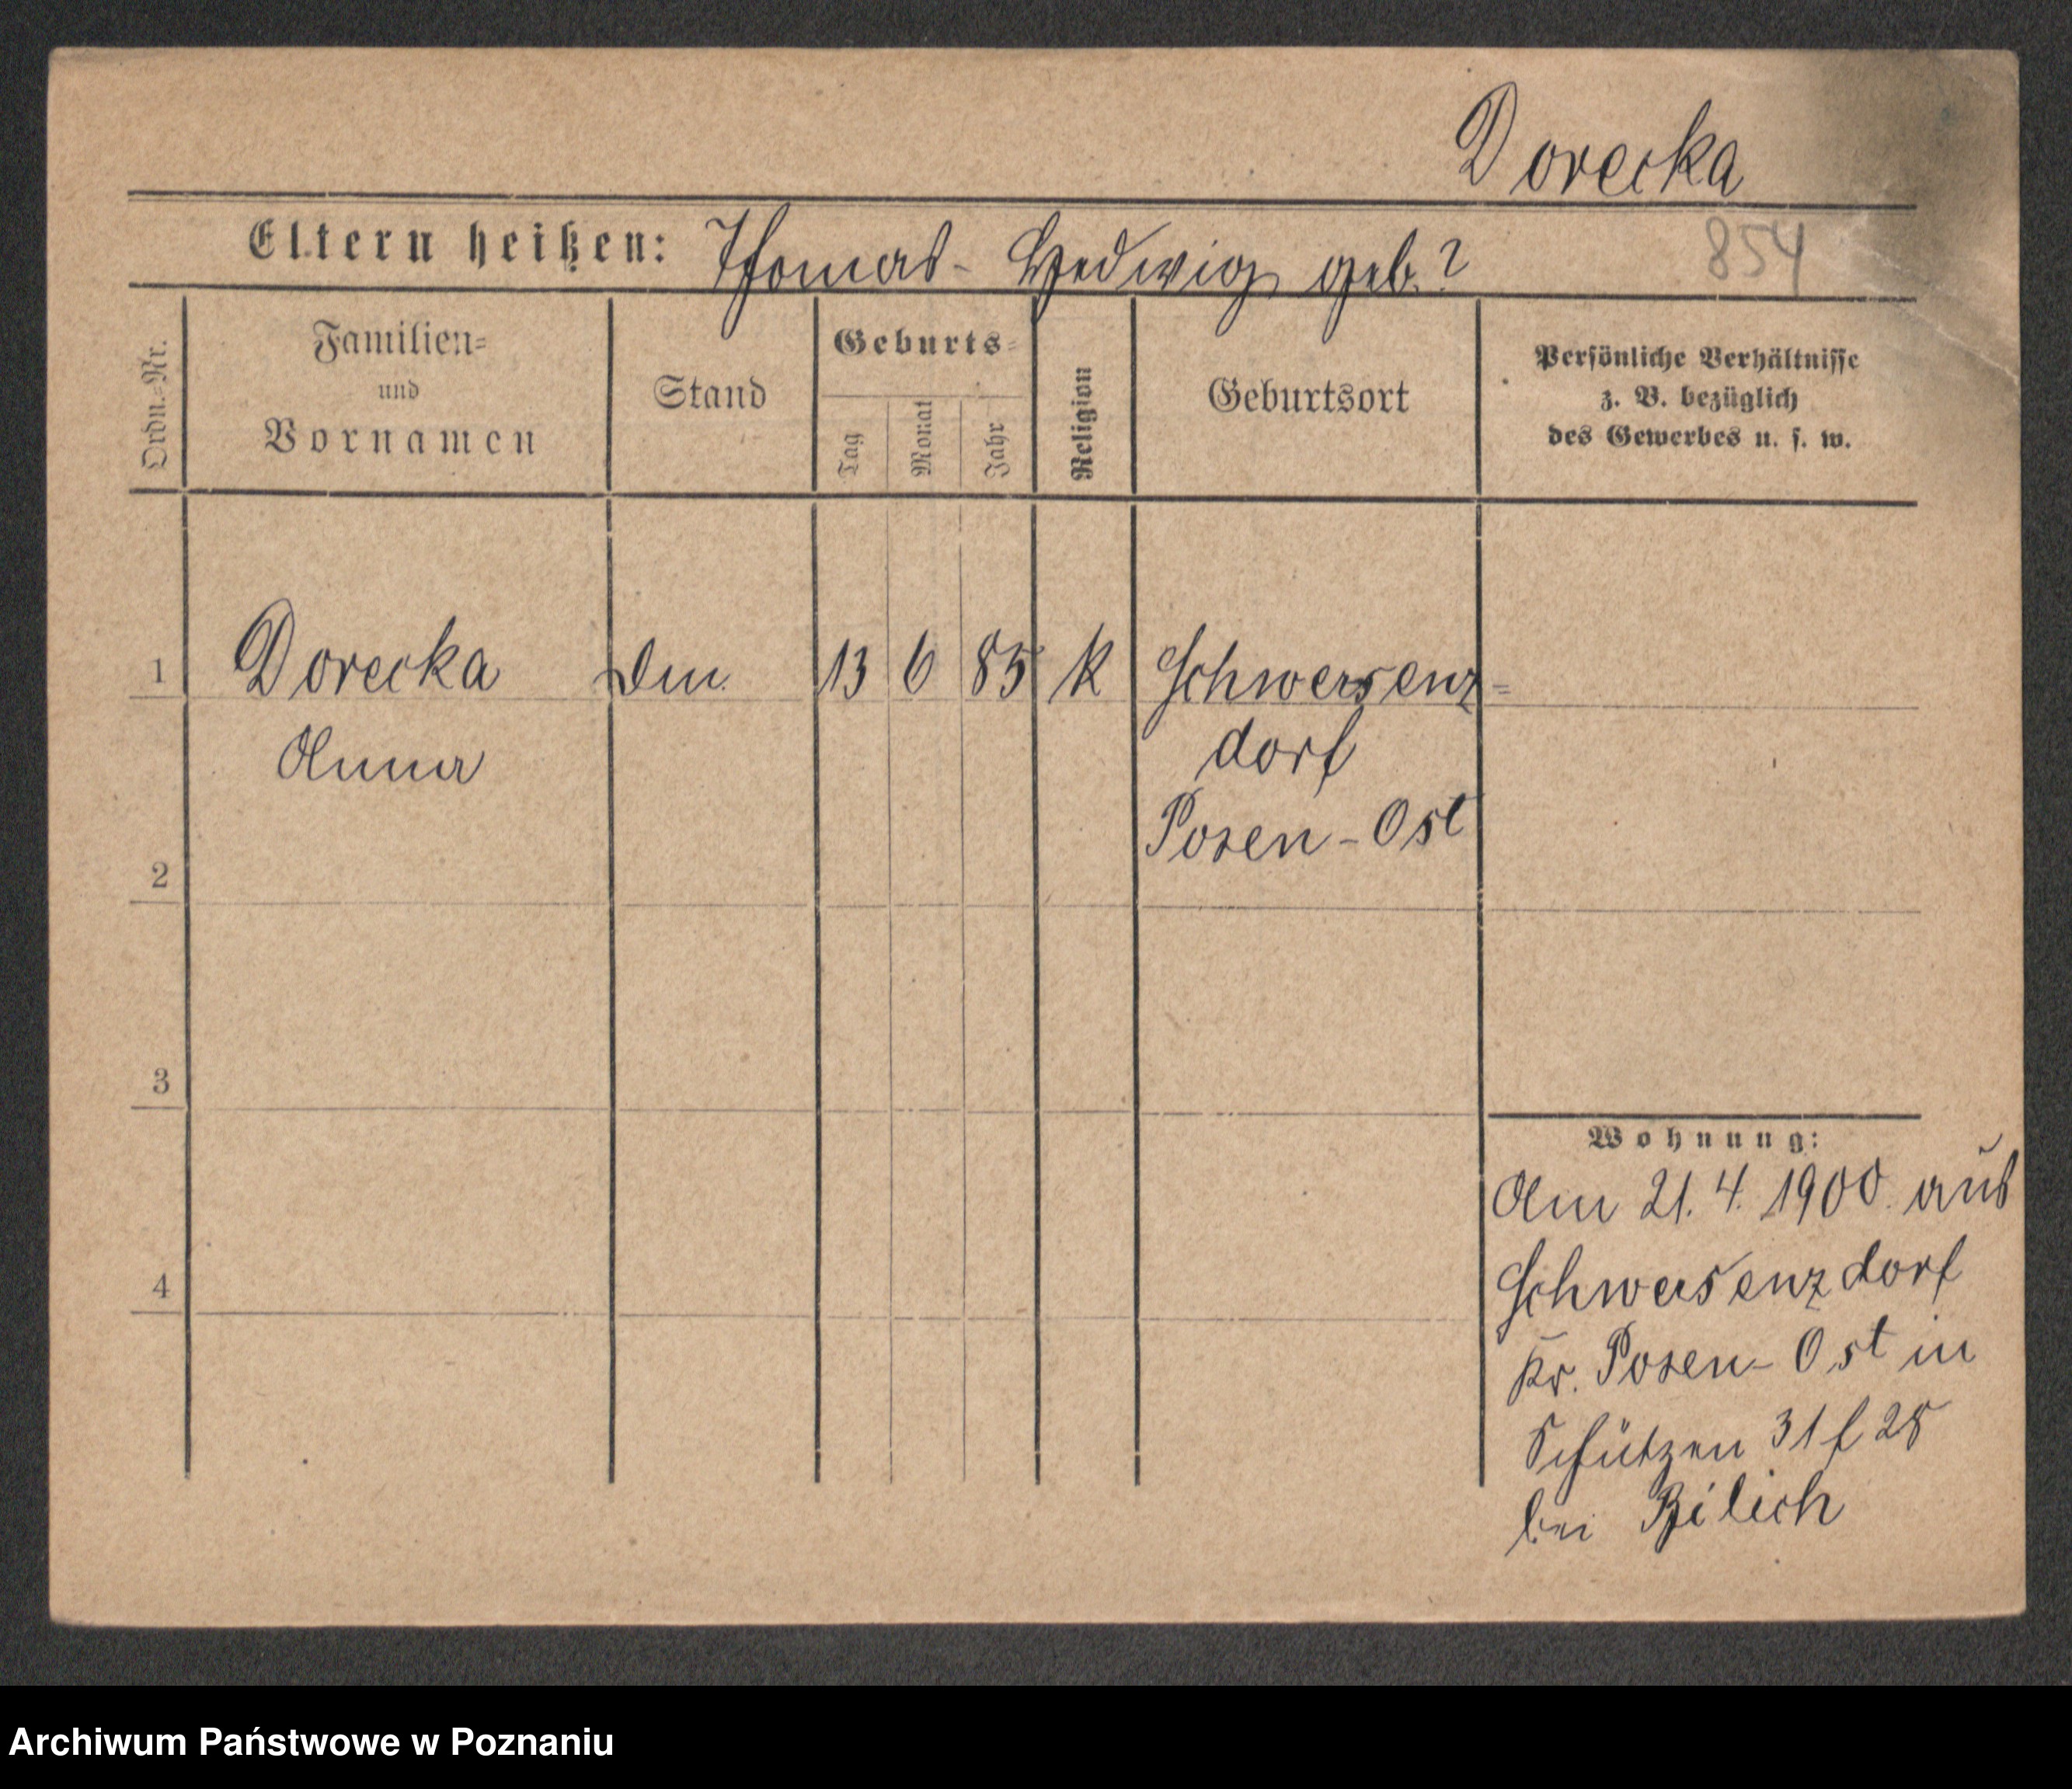 Dorecka
Eltern heißen: Thomas - Hedwig geb. ?
854
Ordn.-Nr.
Familien-
und
Vornamen
Stand
Geburts-
Tag
Monat
Jahr
Religion
Geburtsort
Persönliche Verhältnisse
z. B. bezüglich
des Gewerbes u. s. w.
1 Dorecka 13 6 85 K Schwersenz-
Anna dorf
Posen-Ost
2
3
4
Wohnung:
Am 21. 4. 1900 aus
Schwersenzdorf
Kr. Posen-Ost in
Schützen 31 f 28
bei
Archiwum Państwowe w Poznaniu